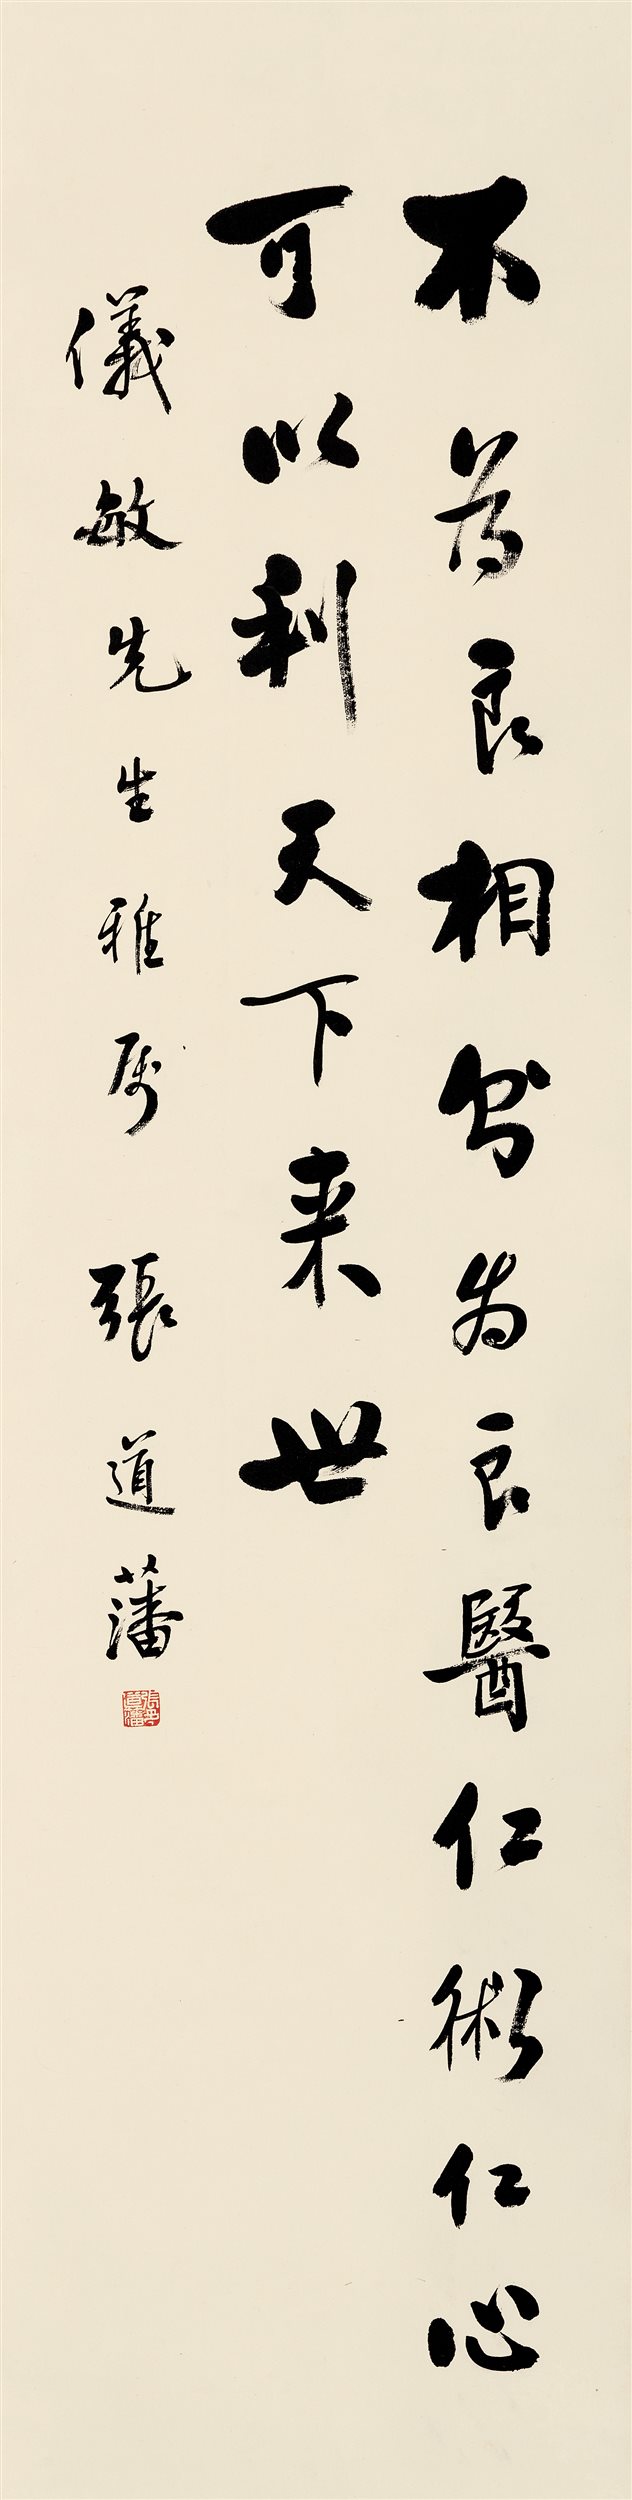 不為良相即為良醫仁術仁心
可以利天下来世
儀敏先生雅属 張道藩
張道藩